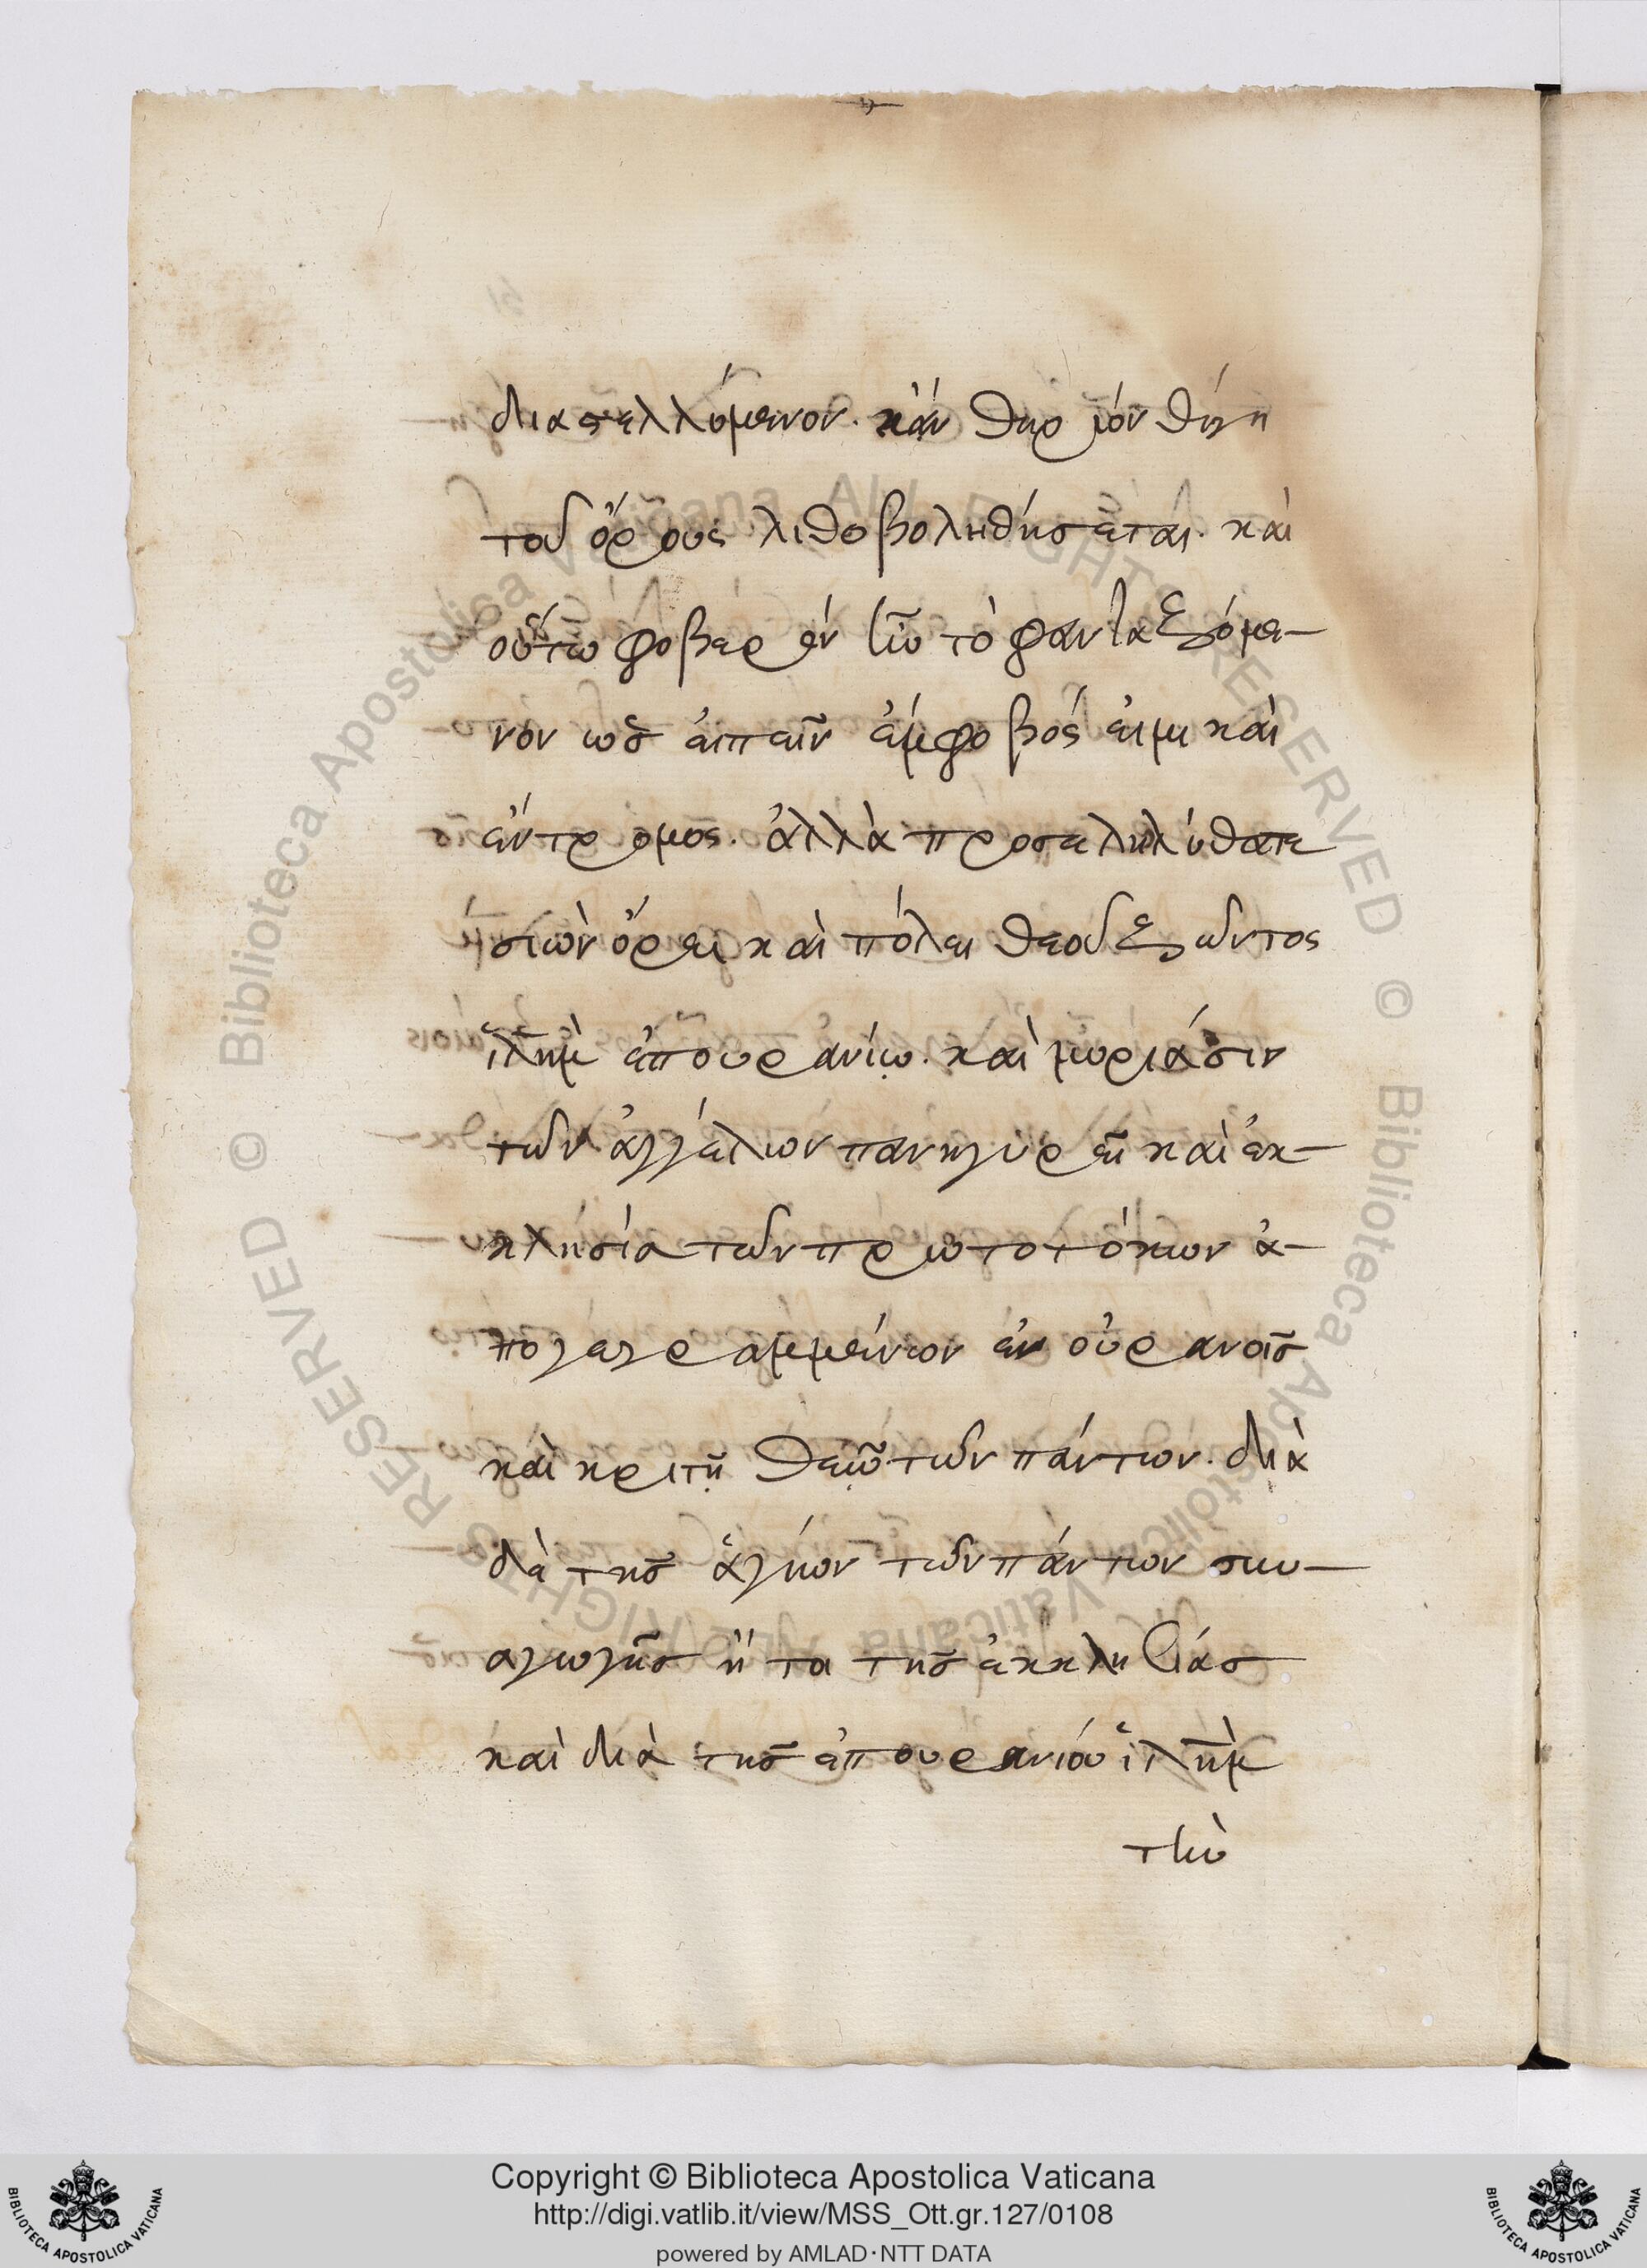 διαστελλόμενον. κἂν θηρίον θίγη
τοῦ ὄρους λιθοβοληθήσεται. καὶ
οὕτω φοβερὸν ἦν τὸ φανταζόμε-
νον ὡς εἰπεῖν ἔμφοβός εἰμι καὶ
ἔντρομος. ἀλλὰ προσεληλύθατε
σιὼν ὄρει καὶ πόλει θεοῦ ζῶντος
ἱλὴμ ἐπουρανίῳ. καὶ μυριάσιν
τῶν ἀγγέλων πανηγύρει καὶ ἐκ-
κλησία τῶν πρωτοτόκων ἀ-
πογεγραμμένων ἐν οὐρανοῖς
καὶ κριτῇ θεῷ τῶν πάντων. διὰ
δὲ τῆς ἁγίων τῶν πάντων συν-
αγωγῆς ἤτοι τῆς ἐκκλησίας
καὶ διὰ τῆς ἐπουρανίου ἱλὴμ
τὴν
Copyright © Biblioteca Apostolica Vaticana
http://digi.vatlib.it/view/MSS_Ott.gr.127/0108
powered by AMLAD·NTT DATA
BIBLIOTECA APOSTOLICA VATICANA
BIBLIOTECA APOSTOLICA VATICANA